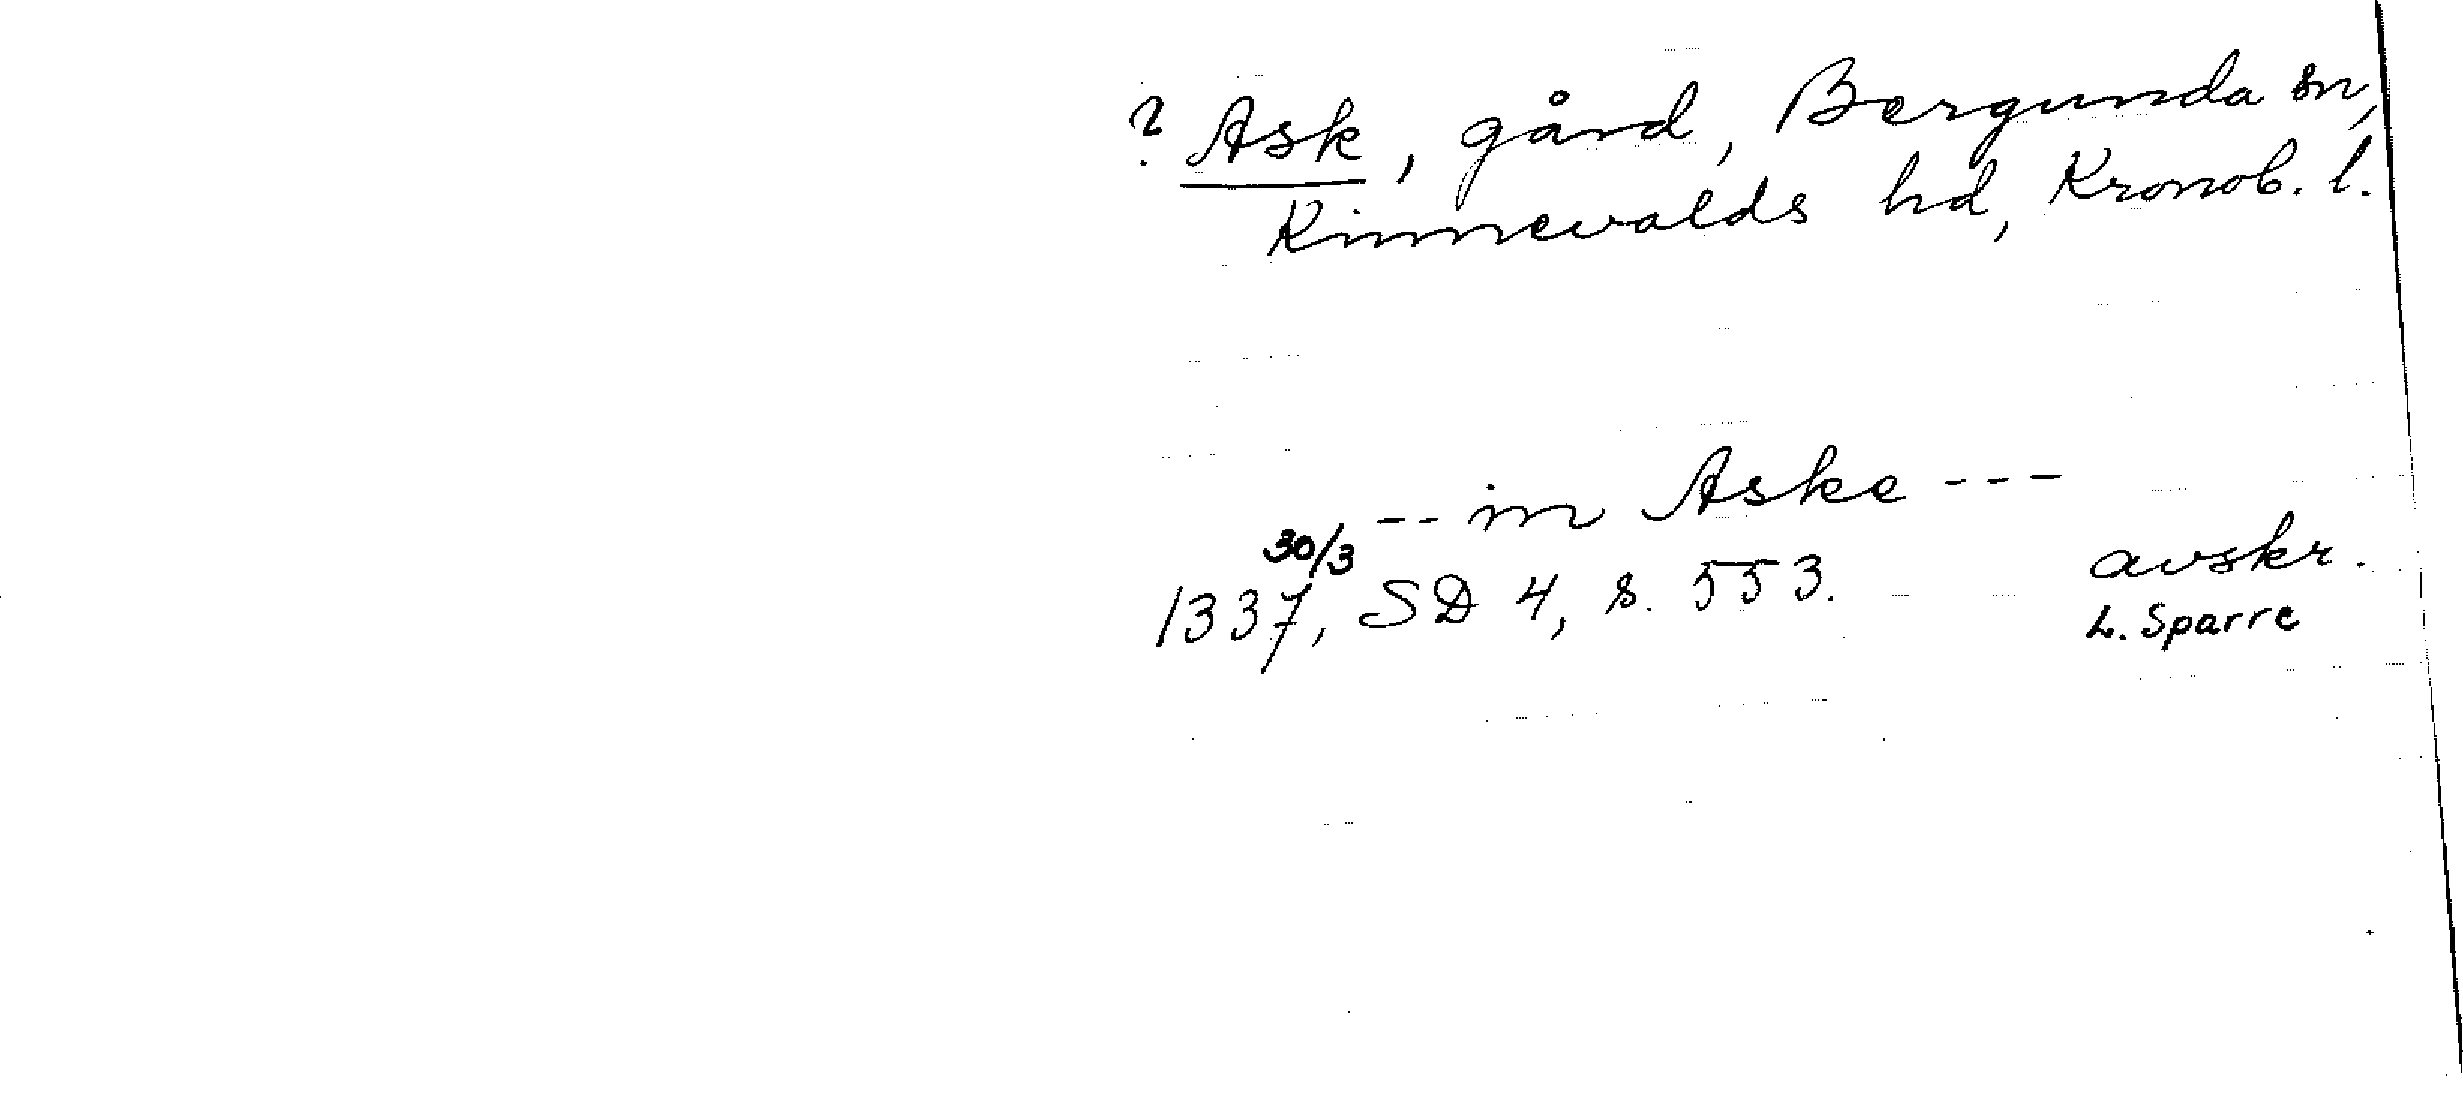 ? Ask, gård, Bergunda sn,
Kinnevalds hd, Kronob. l.
-- in Aske ---
1337 30/3, SD 4, s. 553.
avskr.
L. Sparre